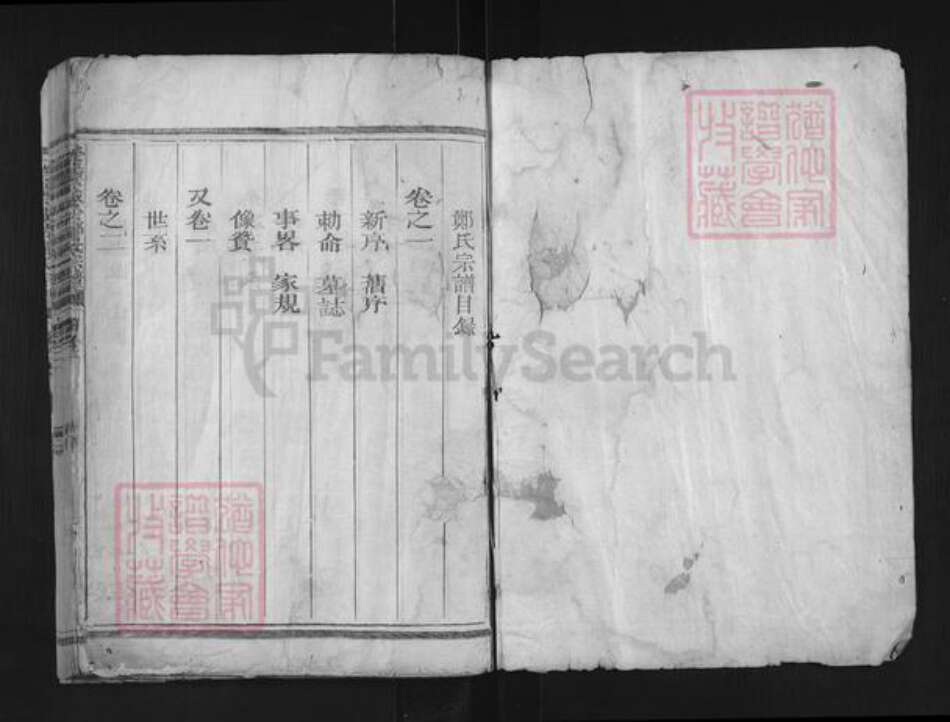 鄭氏宗譜目錄
卷之一
新序 舊序
勅命 墓誌
事畧 家規
像贊
又卷一
世系
卷之二
FamilySearch